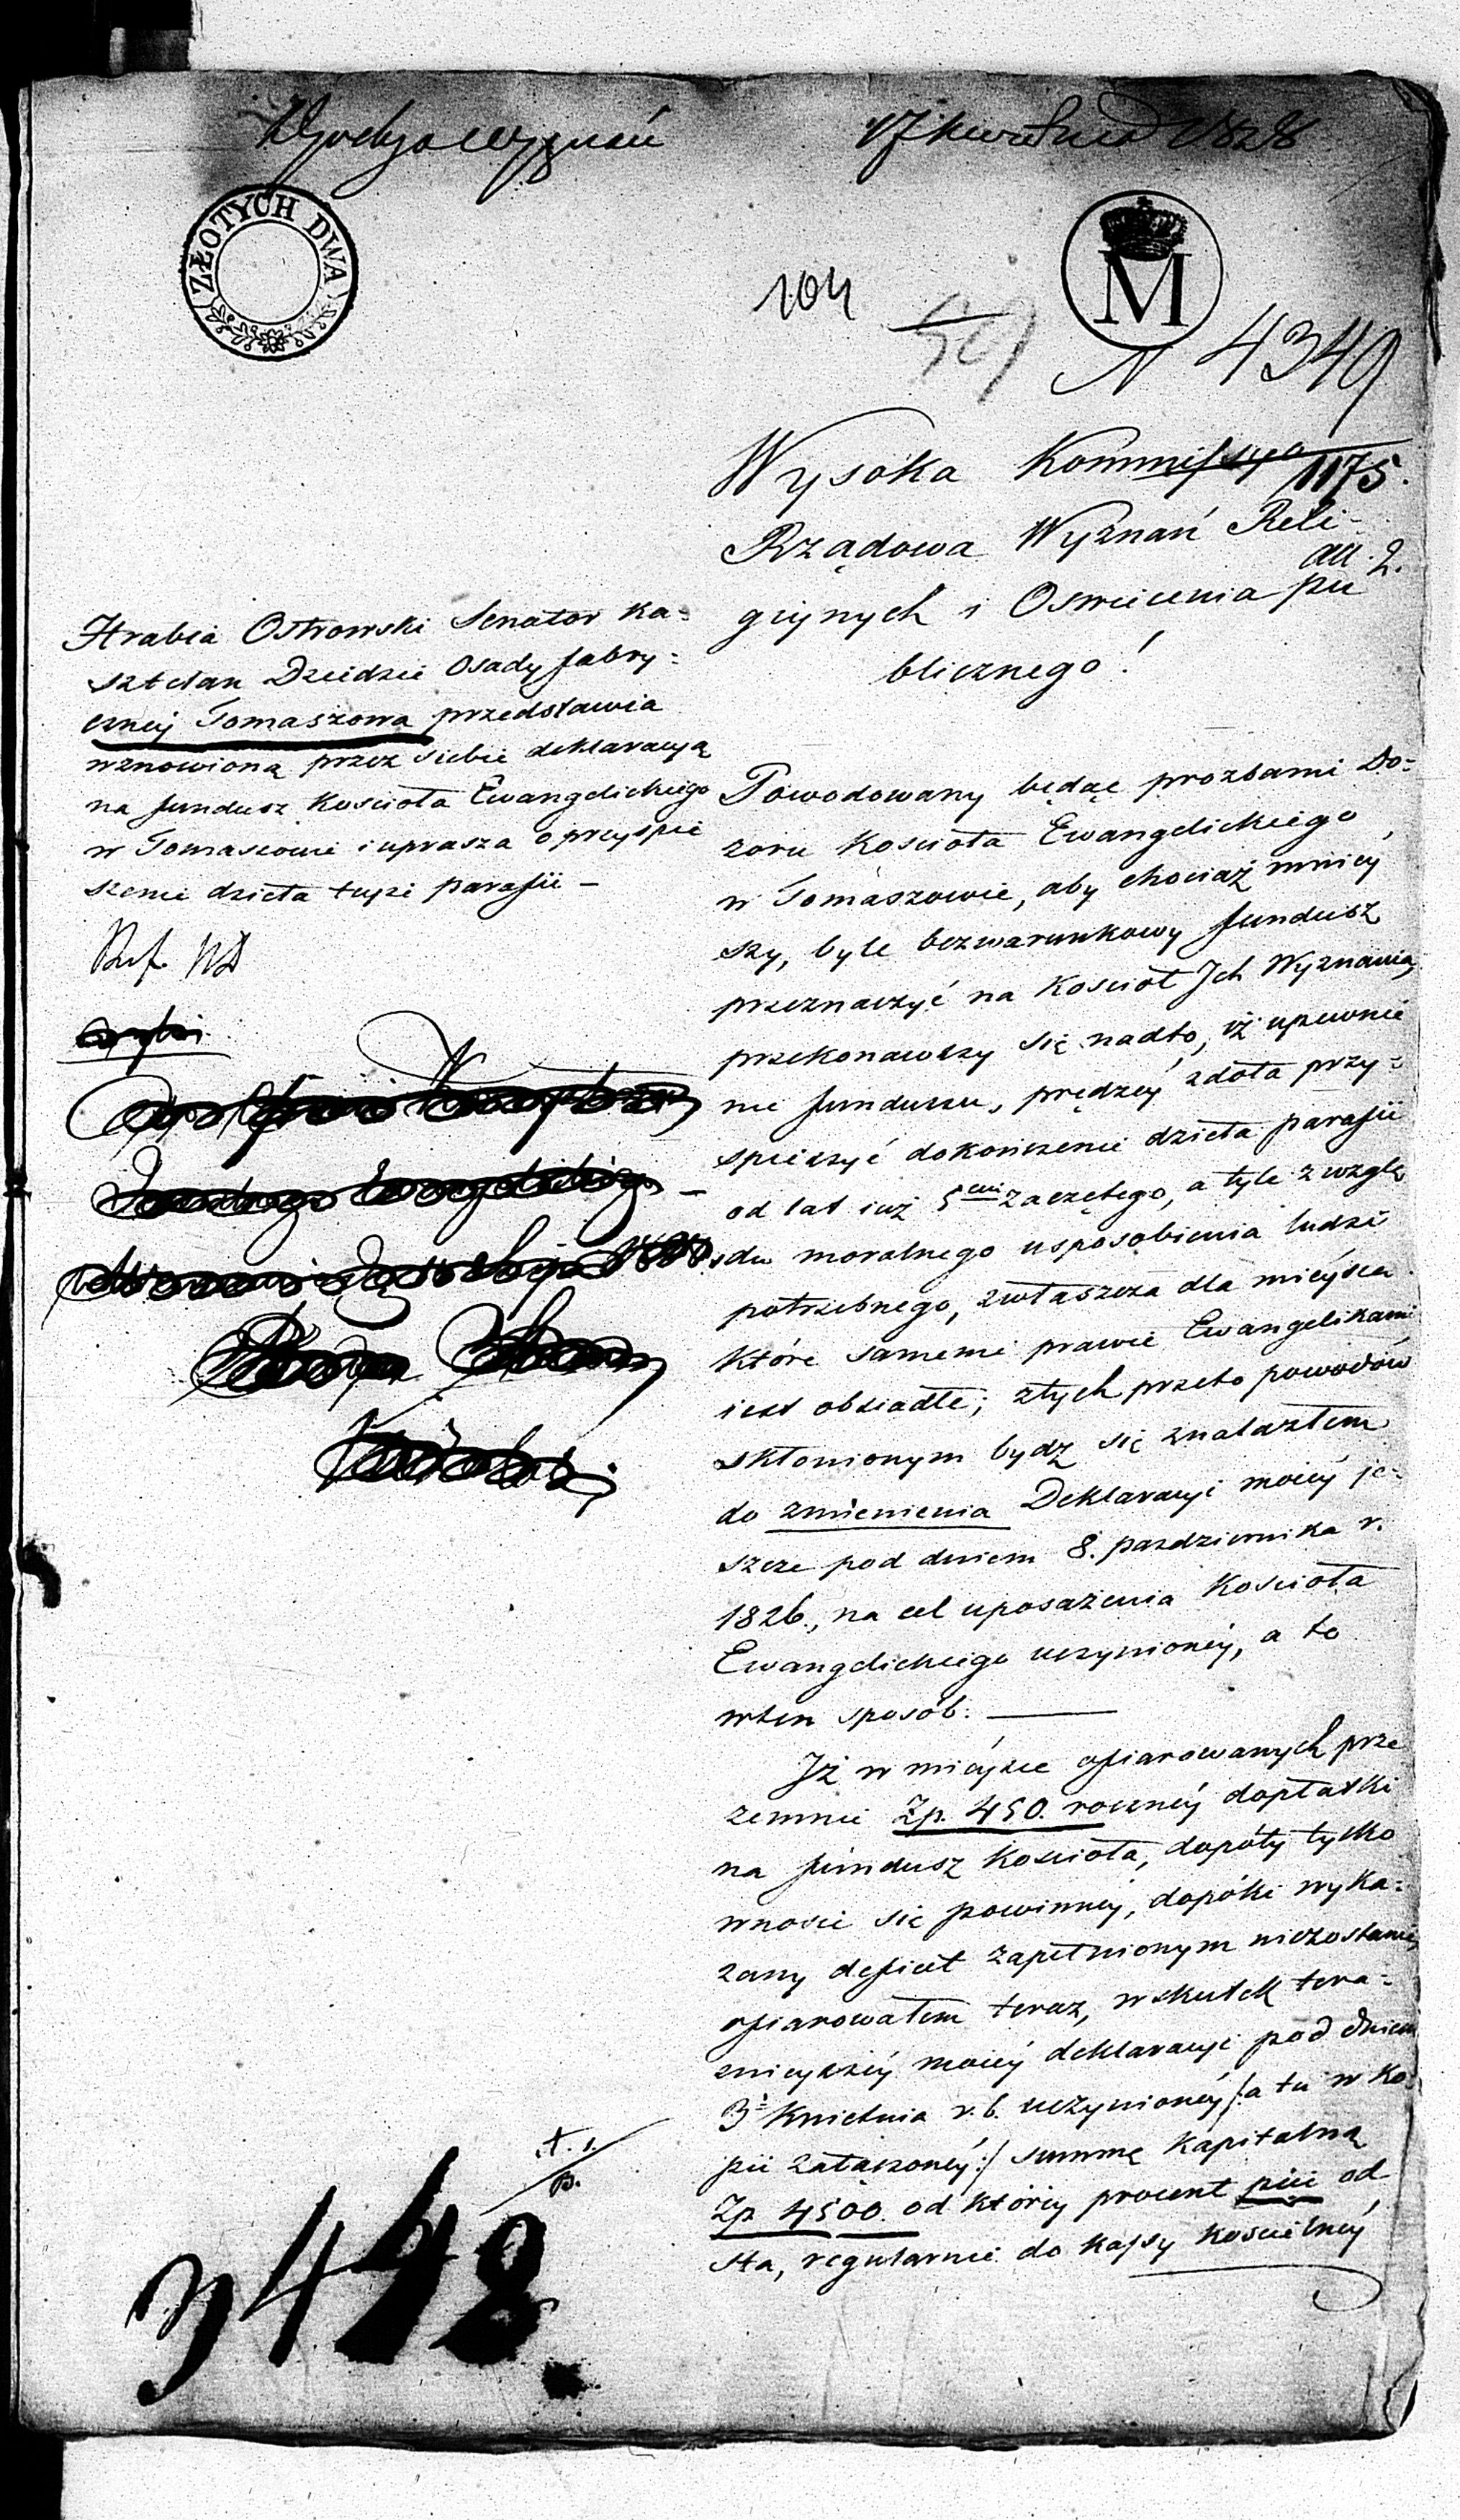 17 kwietnia 1828
ZŁOTYCH DWA
M
104
59
N 4349
1175.
all. 2.
Wysoka Kommissyo
Rządowa Wyznań Reli-
giynych i Oswiecenia pu
blicznego!
Hrabia Ostrowski Senator Ka=
sztelan Dziedzic Osady fabry=
czney Tomaszowa przedstawia
wznowioną przez siebie deklaracyą
na fundusz Kościoła Ewangelickiego
w Tomaszowie i uprasza o przyspie
szenie dzieła tuysz parafii -
Powodowany będąc prozbami Do=
zoru Kościoła Ewangelickiego
w Tomaszowie, aby chociaż mniey
szy, byle bezwarunkowy fundusz
przeznaczyć na Kościoł Jch Wyznania,
przekonawszy się nadto, iż upewnie
nie funduszu, prędzey zdoła przy=
spieszyć dokończenie dzieła parafii
od lat iuż 5ciu zaczętego, a tyle z wzglę
du moralnego usposobienia ludzi
potrzebnego, zwłaszcza dla mieysca
które samemi prawie Ewangelikami
iest obsiadłe; ztych przeto powodów
skłonionym bydz się znalazłem
do zmienienia Deklaracyi moiey je=
szcze pod dniem 8. pazdziernika r.
1826., na cel uposażenia Kościoła
Ewangelickiego uczynioney, a to
wten sposób:
Jż w mieysce ofiarowanych prze
zemnie Zp. 450. roczney dopłatki
na fundusz Kościoła, dopóty tylko
wnosic się powinney, dopóki wyka=
zany deficit zapełnionym niezostanie,
ofiarowałem teraz, wskutek tera=
znieyszey moiey deklaracyi pod dniem
3= Kwietnia r. b. uczynioney /: a tu w Ko
pii załączoney :/ summę Kapitalną
Zp. 4500. od którey procent pięć od
sta, regularnie do Kassy Kościelney
A. 1.
B.
N 448.